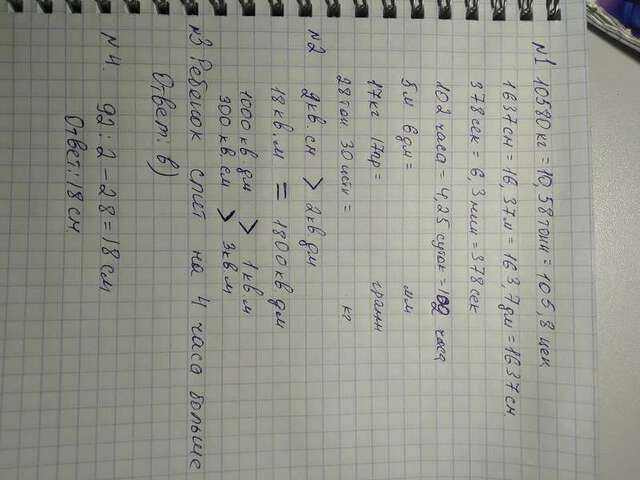 №1 10580 кг = 10,58 тонн = 105,8 цен.
1637 см = 16,37 м = 163,7 дм = 1637 см.
378 сек = 6,3 мин = 378 сек
102 часа = 4,25 суток = 102 часа
5 м 6 дм = мм
17 кг 17 гр = грамм
28 тон 30 центн = кг
№2 2 кв. см > 2 кв дм
18 кв. м = 1800 кв дм
1000 кв. дм > 1 кв м
300 кв. см > 3 кв м
№3 Ребёнок спит на 4 часа больше
Ответ: в)
№4. 92 : 2 – 28 = 18 см.
Ответ: 18 см.